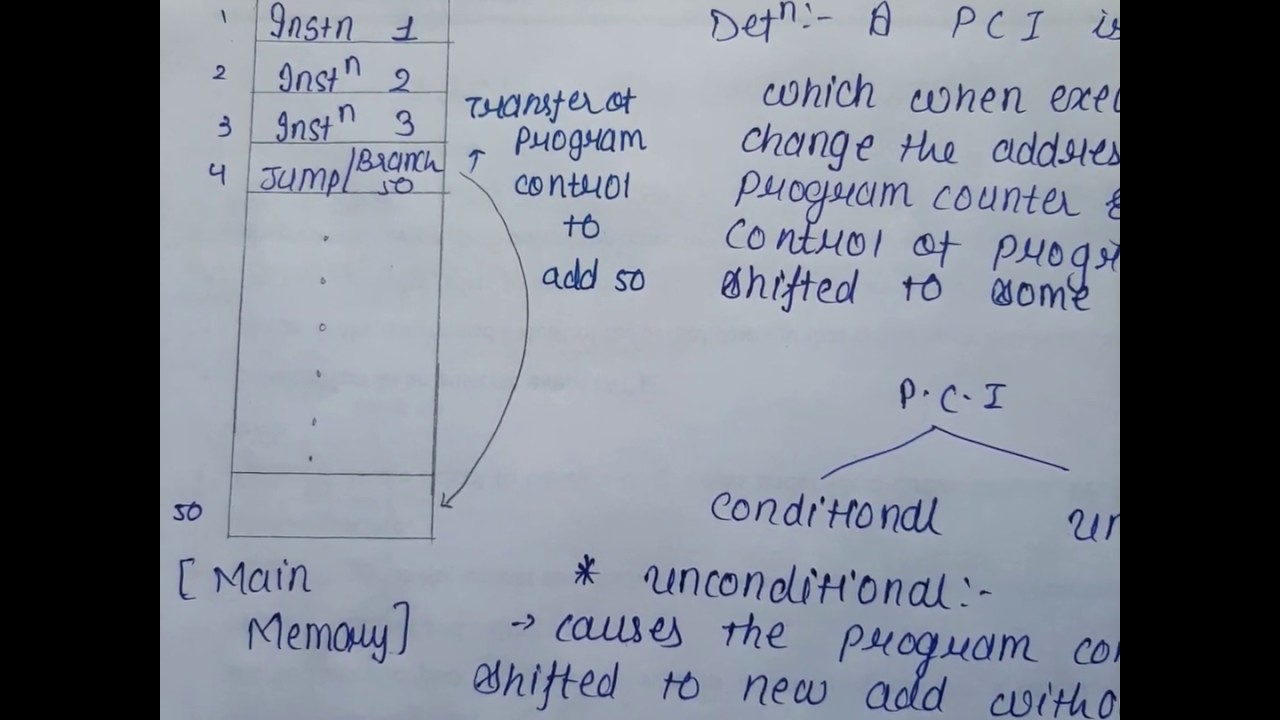 1 Instn 1
2 Instn 2
3 Instn 3
4 Jump/Branch 50
50
[Main
Memory]
Transfer of
program
control
to
add 50
Defn:- A PCI is
which when exec
change the addres
program counter &
control of progr
shifted to some
P.C.I
conditional un
* unconditional:-
→ causes the program con
shifted to new add witho